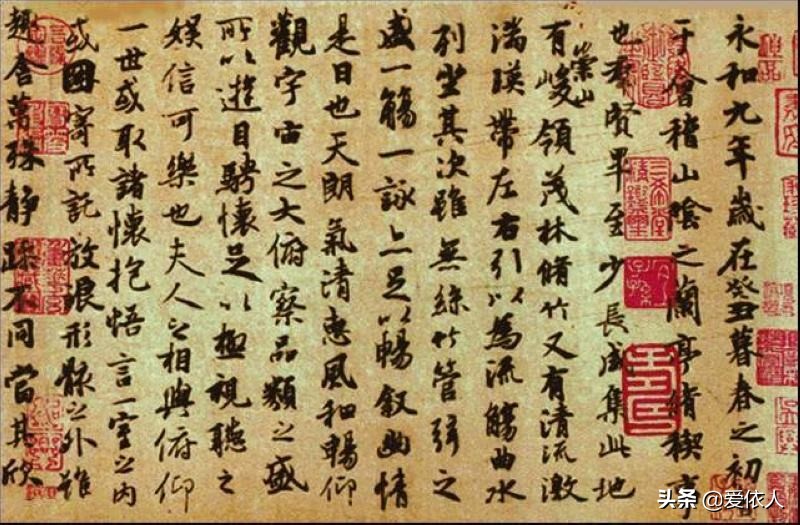 永和九年歲在癸丑暮春之初會
于會稽山陰之蘭亭脩禊事
也羣賢畢至少長咸集此地
有崇山峻領茂林脩竹又有清流激
湍暎帶左右引以為流觴曲水
列坐其次雖無絲竹管弦之
盛一觴一詠亦足以暢叙幽情
是日也天朗氣清惠風和暢仰
觀宇宙之大俯察品類之盛
所以遊目騁懷足以極視聽之
娛信可樂也夫人之相與俯仰
一世或取諸懷抱悟言一室之內
或因寄所託放浪形骸之外雖
趣舍萬殊靜躁不同當其欣
头条 @爱依人